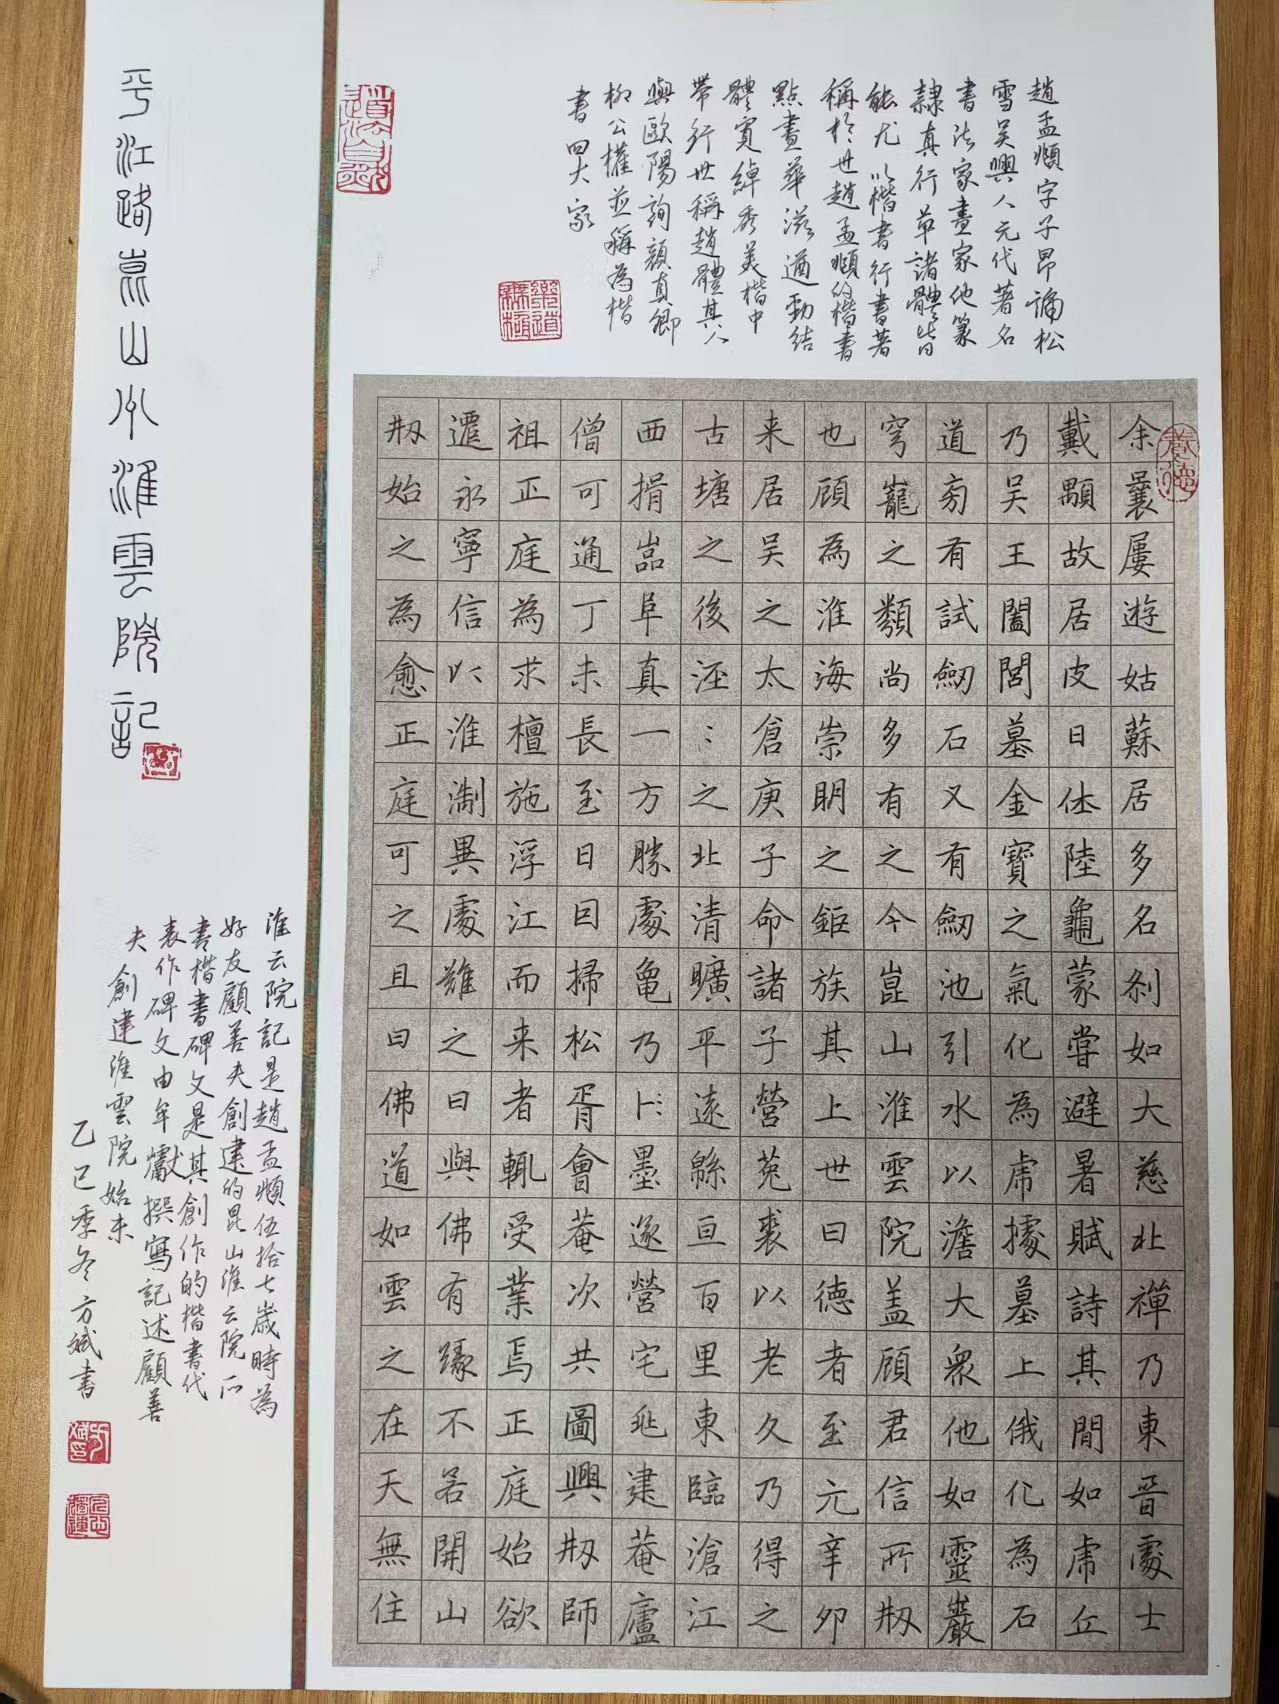 趙孟頫字子昂松
雪吴興人元代著名
書法家畫家他篆
隸真行草諸體皆
能尤以楷書行書著
稱於世趙孟頫的楷書
點畫華滋遒勁結
體寬綽秀美楷中
帶行世稱趙體其人
與歐陽詢顏真卿
柳公權並稱為楷
書四大家
道法自然
余曩屢遊姑蘇居多名刹如大慈北禪乃東晉處士
戴顒故居皮日休陸龜蒙嘗避暑賦詩其間如虎丘
乃吴王闔閭墓金寶之氣化為虎據墓上俄化為石
道旁有試劒石又有劒池引水以澹大衆他如靈巖
穹窿之類尚多有之今崑山淮雲院盖顧君信所刱
也顧為淮海崇明之鉅族其上世曰德者至元辛卯
来居吴之太倉庚子命諸子營菟裘以老久乃得之
古塘之後涇〻之北清曠平遠緜亘百里東臨滄江
西揖嵓阜真一方勝處龜乃卜墨遂營宅兆建菴廬
僧可通丁未長至日因掃松胥會菴次共圖興刱師
祖正庭為求檀施浮江而来者輒受業焉正庭始欲
遷永寧信以淮淛異處難之曰與佛有緣不若開山
刱始之為愈正庭可之且曰佛道如雲之在天無住
平江路崑山州淮雲院記
淮云院記是趙孟頫伍拾七歲時為
好友顧善夫創建的昆山淮云院所
書楷書碑文是其創作的楷書代
表作碑文由牟巘撰寫記述顧善
夫創建淮雲院始末
乙巳季冬方斌書